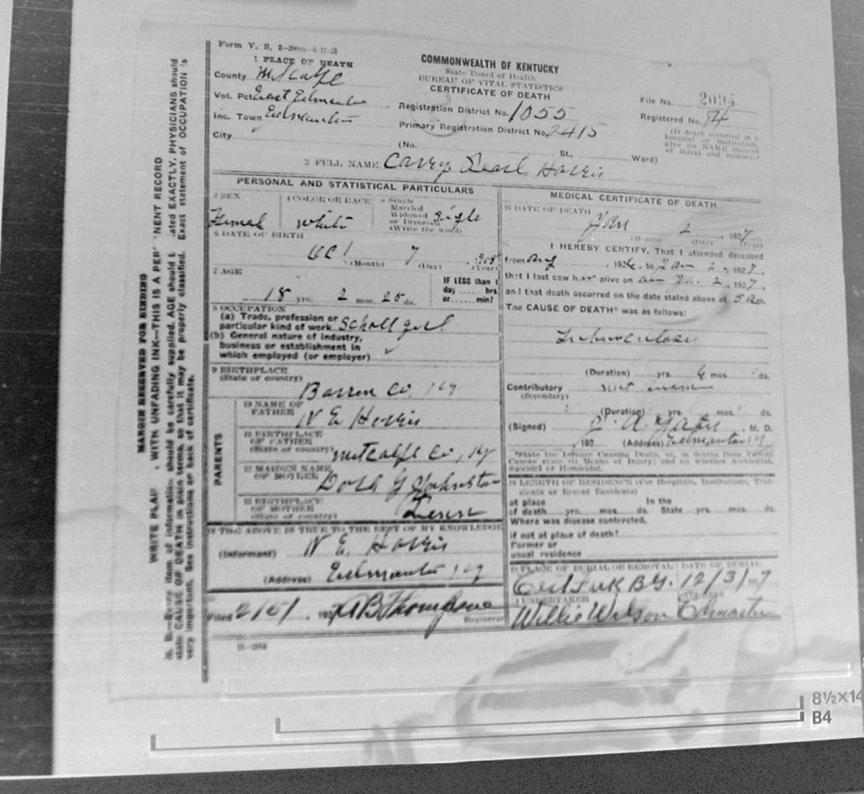 Form V. S.
COMMONWEALTH OF KENTUCKY
State Board of Health
BUREAU OF VITAL STATISTICS
CERTIFICATE OF DEATH
1 PLACE OF DEATH
County Metcalfe
Vol. Pct East Edmonton
Inc. Town Edmonton
City
Registration District No. 1055
Primary Registration District No. 2415
File No.
Registered No.
(If death occurred in a hospital or institution, give its NAME instead of street and number.)
(No. St., Ward)
2 FULL NAME Carry Pearl Harris
PERSONAL AND STATISTICAL PARTICULARS
3 SEX
Femal
4 COLOR OR RACE
white
5 Single
Married
Widowed
or Divorced
(Write the word)
Sigle
6 DATE OF BIRTH
Oct 7 1908
(Month) (Day) (Year)
7 AGE
18 yrs. 2 mos. 25 ds.
IF LESS than 1
day hrs.
or min?
8 OCCUPATION
(a) Trade, profession or
particular kind of work School girl
(b) General nature of industry,
business or establishment in
which employed (or employer)
9 BIRTHPLACE
(State or country)
Barren Co, Ky
PARENTS
10 NAME OF
FATHER
N E Harris
11 BIRTHPLACE
OF FATHER
(State or country) Metcalfe Co, Ky
12 MAIDEN NAME
OF MOTHER
13 BIRTHPLACE
OF MOTHER
(State or country)
Tenn
14 THE ABOVE IS TRUE TO THE BEST OF MY KNOWLEDGE
(Informant) N E. Harris
(Address) Edmonton Ky
Filed
Registrar
MEDICAL CERTIFICATE OF DEATH
16 DATE OF DEATH
Jan 2 1927
(Month) (Day) (Year)
I HEREBY CERTIFY, That I attended deceased
from Aug, 1926, to Jan 2, 1927,
that I last saw her alive on Jan. 2, 1927,
and that death occurred on the date stated above at 5 am
The CAUSE OF DEATH* was as follows:
Tuberculosis
(Duration) yrs. 6 mos. ds.
Contributory
(Secondary)
(Duration) yrs. mos. ds.
(Signed) M. D.
, 192 (Address) Edmonton Ky
*State the Disease Causing Death, or, in deaths from Violent
Causes state (1) Means of Injury; and (2) whether Accidental,
Suicidal or Homicidal.
18 LENGTH OF RESIDENCE (For Hospitals, Institutions, Transients or Recent Residents)
at place In the
of death yrs. mos. ds. State yrs. mos. ds.
Where was disease contracted,
if not at place of death?
Former or
usual residence
19 PLACE OF BURIAL OR REMOVAL DATE OF BURIAL
12/3/27
20 UNDERTAKER ADDRESS
Willie Wilson
MARGIN RESERVED FOR BINDING
WRITE PLAI , WITH UNFADING INK—THIS IS A PER NENT RECORD
N. B.—Every item of information should be carefully supplied. AGE should b ated EXACTLY. PHYSICIANS should
state CAUSE OF DEATH in plain terms, so that it may be properly classified. Exact statement of OCCUPATION is
very important. See instructions on back of certificate.
8½×14
B4